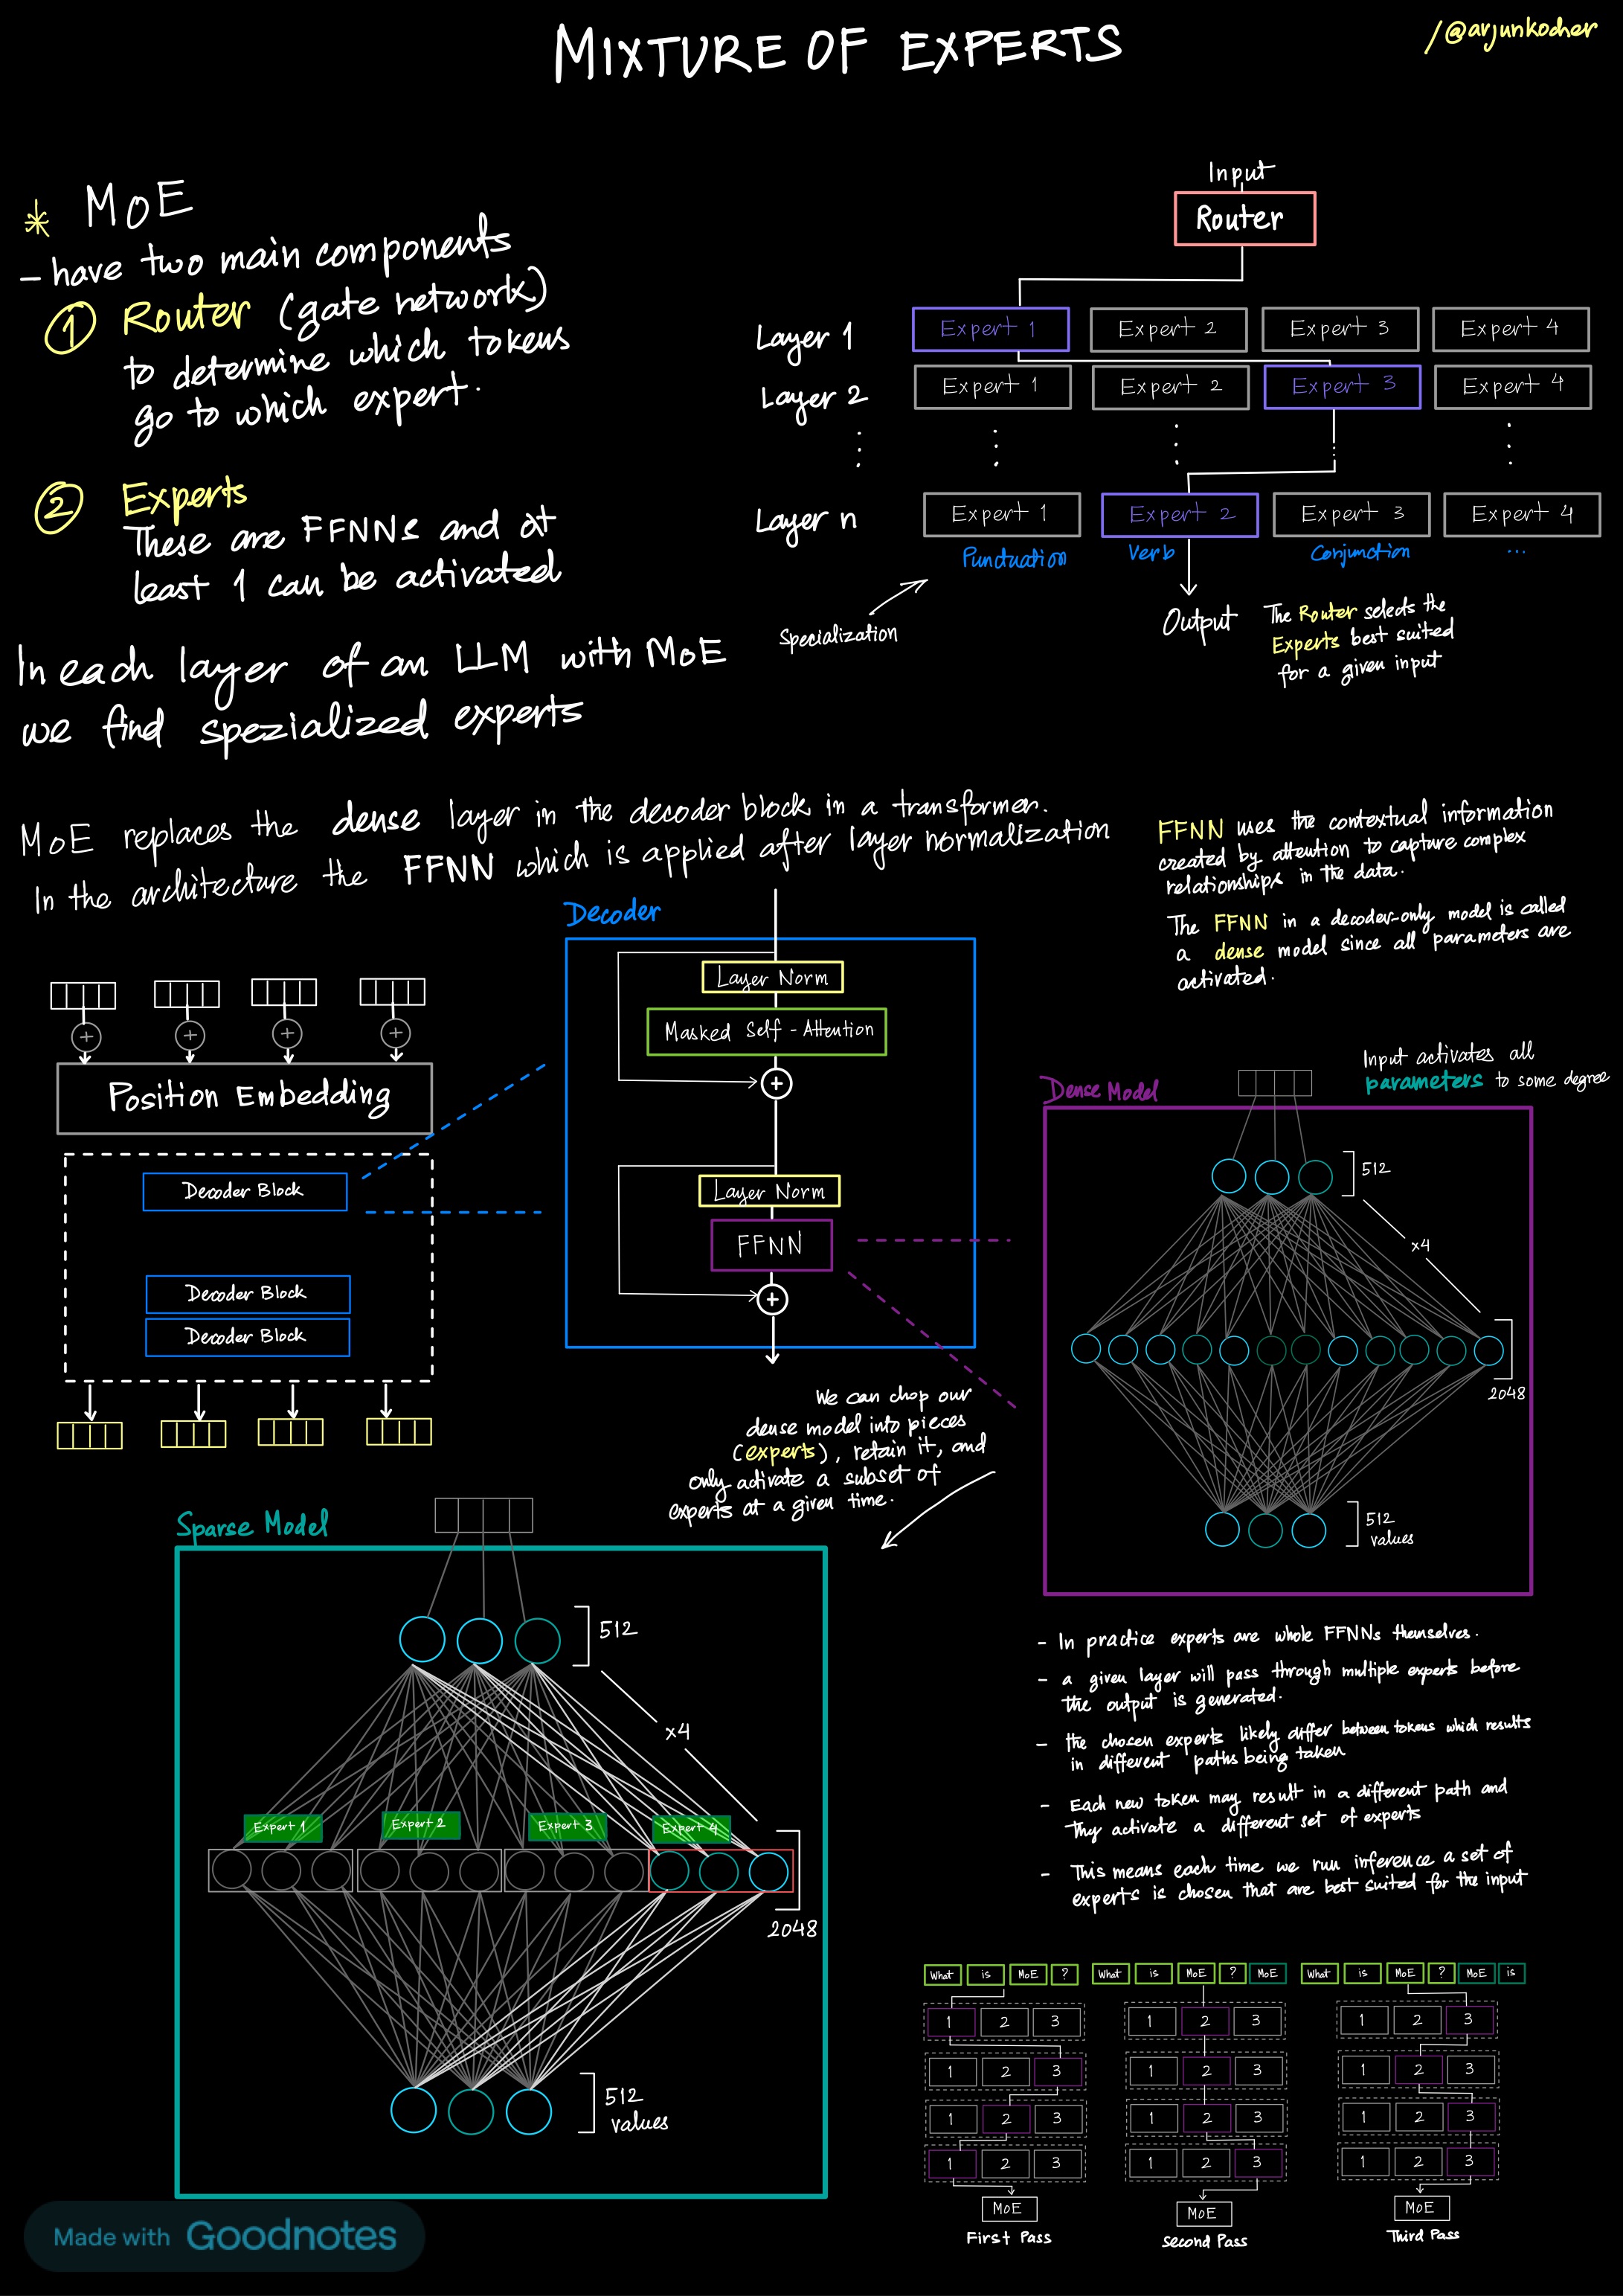 MIXTURE OF EXPERTS
/@arjunkocher
* MoE
- have two main components
① Router (gate network)
to determine which tokens
go to which expert.
② Experts
These are FFNNs and at
least 1 can be activated
In each layer of an LLM with MoE
we find spezialized experts
Input
Router
Layer 1
Expert 1
Expert 2
Expert 3
Expert 4
Layer 2
Expert 1
Expert 2
Expert 3
Expert 4
Layer n
Expert 1
Expert 2
Expert 3
Expert 4
Punctuation
Verb
Conjunction
...
Specialization
Output
The Router selects the
Experts best suited
for a given input
MoE replaces the dense layer in the decoder block in a transformer.
In the architecture the FFNN which is applied after layer normalization
FFNN uses the contextual information
created by attention to capture complex
relationships in the data.
The FFNN in a decoder-only model is called
a dense model since all parameters are
activated.
Position Embedding
Decoder Block
Decoder Block
Decoder Block
Decoder
Layer Norm
Masked Self-Attention
+
Layer Norm
FFNN
+
Dense Model
Input activates all
parameters to some degree
512
x4
2048
512
values
We can chop our
dense model into pieces
(experts), retain it, and
only activate a subset of
experts at a given time.
Sparse Model
512
x4
Expert 1
Expert 2
Expert 3
Expert 4
2048
512
values
- In practice experts are whole FFNNs themselves.
- a given layer will pass through multiple experts before
the output is generated.
- the chosen experts likely differ between tokens which results
in different paths being taken
- Each new token may result in a different path and
thy activate a different set of experts
- This means each time we run inference a set of
experts is chosen that are best suited for the input
What is MoE ?
1 2 3
1 2 3
1 2 3
1 2 3
MoE
First Pass
What is MoE ? MoE
1 2 3
1 2 3
1 2 3
1 2 3
MoE
Second Pass
What is MoE ? MoE is
1 2 3
1 2 3
1 2 3
1 2 3
MoE
Third Pass
Made with Goodnotes